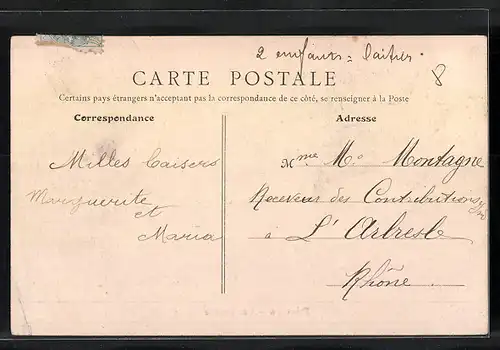 2 enfants =
8
CARTE POSTALE
Certains pays étrangers n'acceptant pas la correspondance de ce côté, se renseigner à la Poste
Correspondance
Milles Baisers
Marguerite
et
Maria
Adresse
Mme Montagne
Receveur des Contributions
à L'Arbresle
Rhône